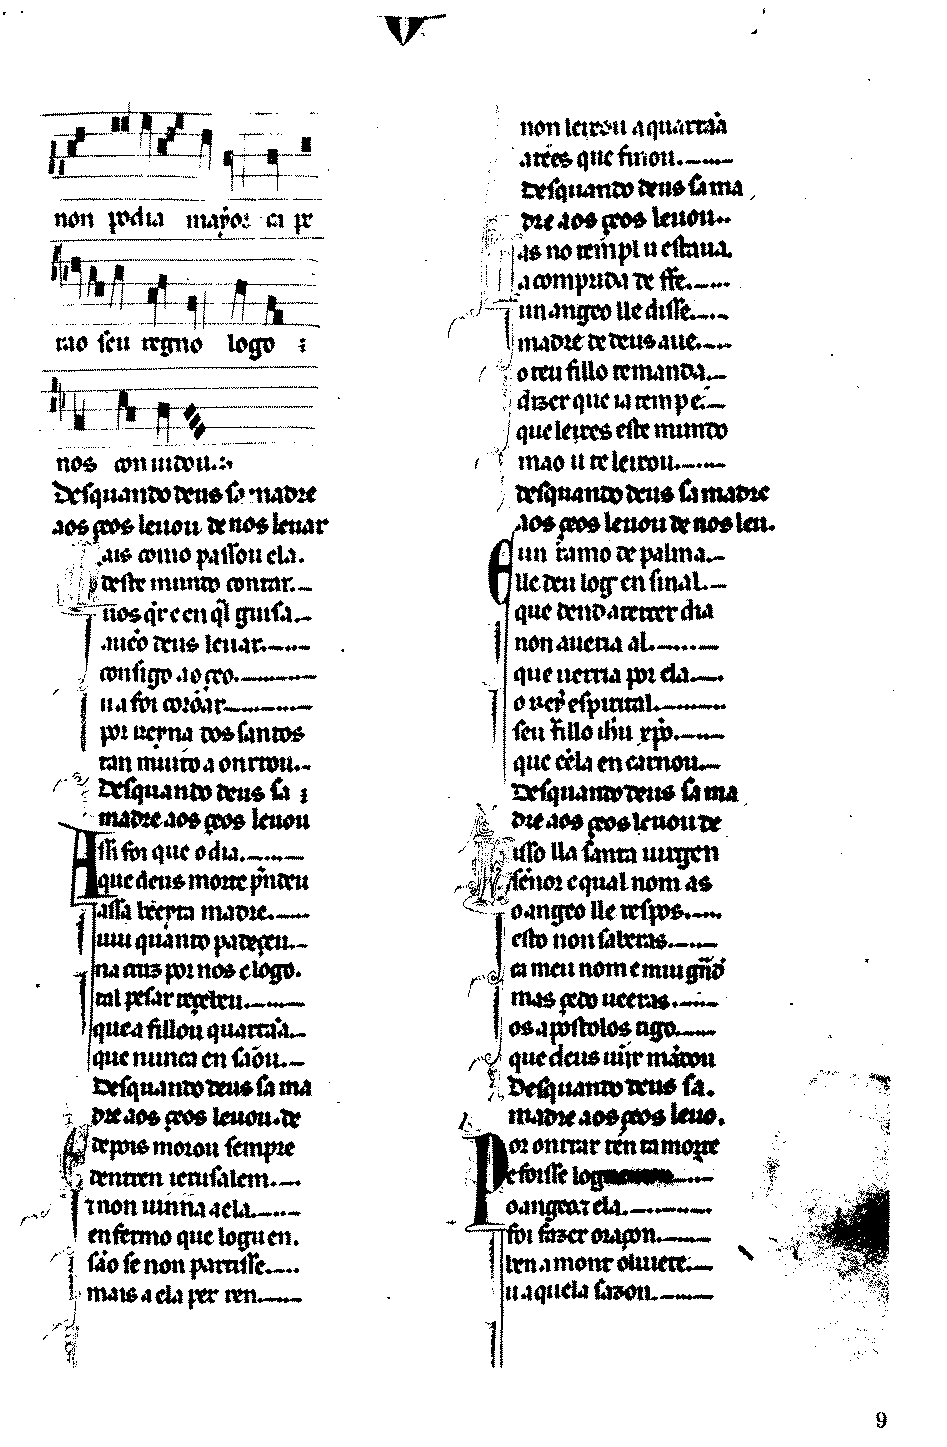 V
non podia mayor. ca pe
rao seu regno logo :
nos conuidou.
Desquando deus sa madre
aos çeos leuou de nos leuar
ais como passou ela.
deste mundo contar.
uos q̃r e en q̃l guisa.
a uẽo deus leuar.
consigo ao çeo.
u a foi corõar
por reyna dos santos
tan muito a onrrou.
Desquando deus sa :
madre aos çeos leuou
Assi foi que o dia.
que deus morte p̃ndeu
assa bẽeyta madre.
uiu quãnto padeçeu.
na cruz por nos e logo.
tal pesar reçebeu.
que a fillou quartãa.
que nunca en sãou.
Desquando deus sa ma
dre aos çeos leuou. de
E depois morou sempre
dentren ierusalem.
τ non uĩna a ela.
enfermo que loguen.
são se non partisse.
mais a ela per ren.
non leixou a quartãa
atẽes que finou.
Desquando deus sa ma
dre aos çeos leuou..
as no templ u estaua.
a comprida de ffe.
un angeo lle disse.
madre de deus aue.
o teu fillo te manda.
dizer que ia temp e.
que leixes este mundo
mao u te leixou.
Desquando deus sa madre
aos çeos leuou de nos leu.
E un ramo de palma.
lle deu log en sinal.
que dend a terçer dia
non aueria al.
que uerria por ela.
o rey espirital.
seu fillo ihũ xpo.
que cẽla en carnou.
Desquando deus sa ma
dre aos çeos leuou de
isso lla santa uirgen
sẽnor e qual nom as
o angeo lle respos.
esto non saberas.
ca meu nom e mui gñd
mas çedo ueeras.
os apostolos tigo.
que deus uĩjr mãdou
Desquando deus sa.
madre aos çeos leuo.
Por onrrar tẽn ta morte
e foisse log
o angeo. τ ela.
foi fazer oraçon.
ben a mont oliuete.
u aquela sazon.
9